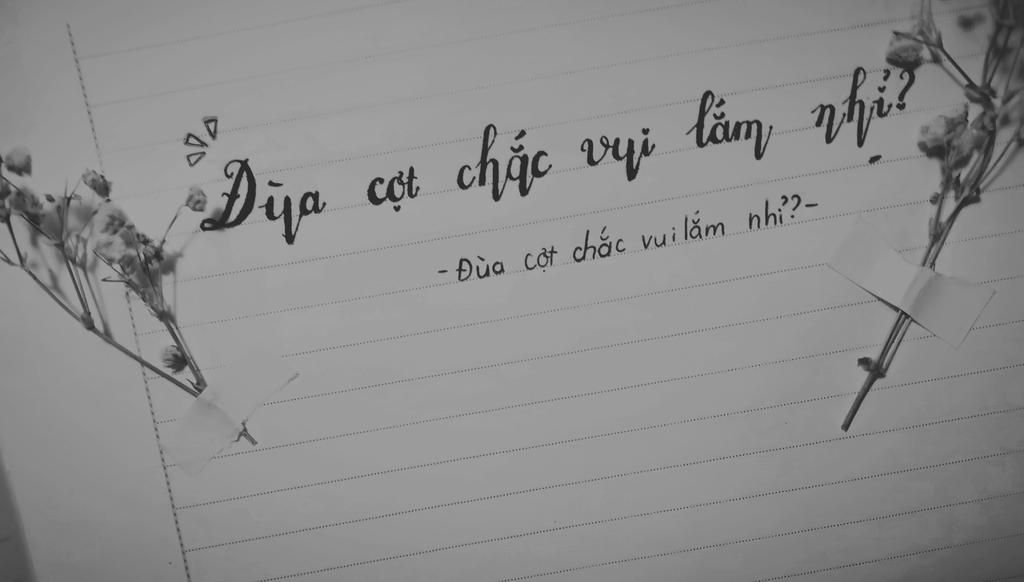 Đùa cợt chắc vui lắm nhỉ?
- Đùa cợt chắc vui lắm nhỉ?? -